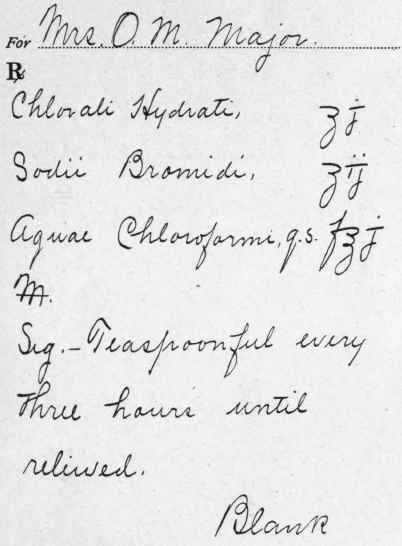 For Mrs. O. M. Major.
℞
Chlorali Hydrati, ʒ j
Sodii Bromidi, ʒ ij
Aquae Chloroformi, q.s. f℥ j
M.
Sig. – Teaspoonful every
three hours until
relieved.
Blank